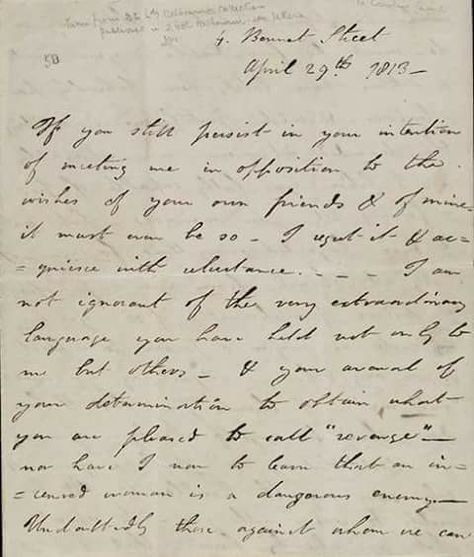 4. Bennet Street
April 29th 1813 -
50
If you still persist in your intention
of meeting me in opposition to the
wishes of your own friends & of mine
it must even be so - I regret it & ac-
=quiesce with reluctance. - - - - I am
not ignorant of the very extraordinary
language you have held not only to
me but others - & your avowal of
your determination to obtain what
you are pleased to call "revenge" -
nor have I now to learn that an in-
=censed woman is a dangerous enemy -
Undoubtedly those against whom we can